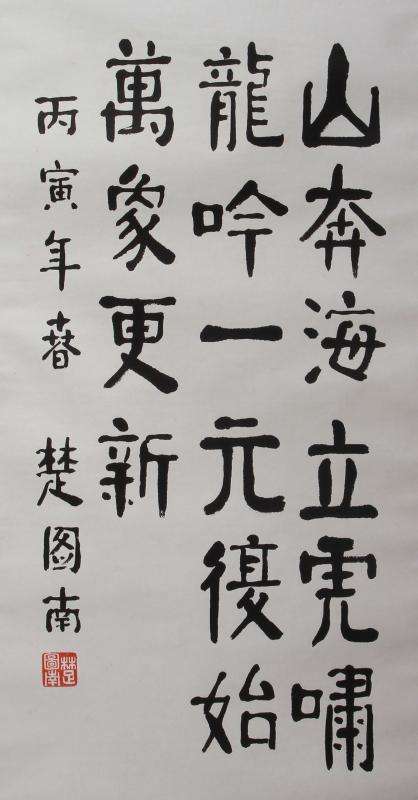 山奔海立虎嘯
龍吟一元復始
萬象更新
丙寅年春 楚图南
楚圖南